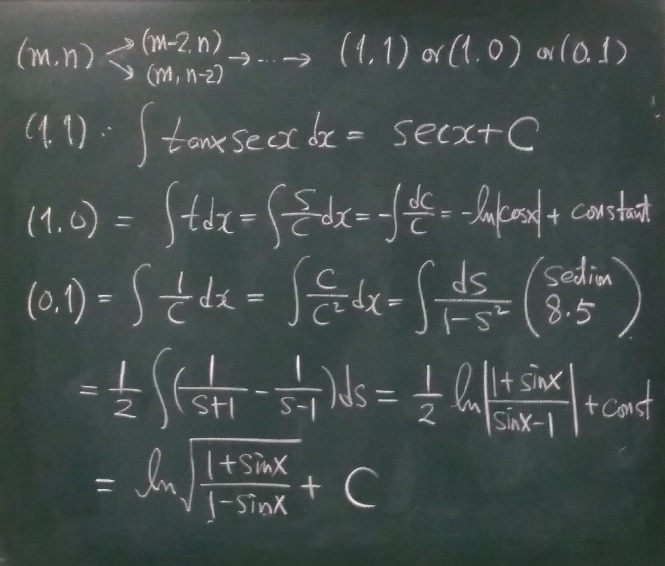 (m,n) < (m-2,n) (m,n-2) → ... → (1,1) or (1,0) or (0,1)
(1,1) : ∫ tanx secx dx = secx + C
(1,0) = ∫ t dx = ∫ s/c dx = -∫ dc/c = -ln|cosx| + constant
(0,1) = ∫ 1/c dx = ∫ c/c² dx = ∫ ds/(1-s²) (section 8.5)
= 1/2 ∫ (1/(s+1) - 1/(s-1)) ds = 1/2 ln |(1+sinx)/(sinx-1)| + const
= ln √((1+sinx)/(1-sinx)) + C